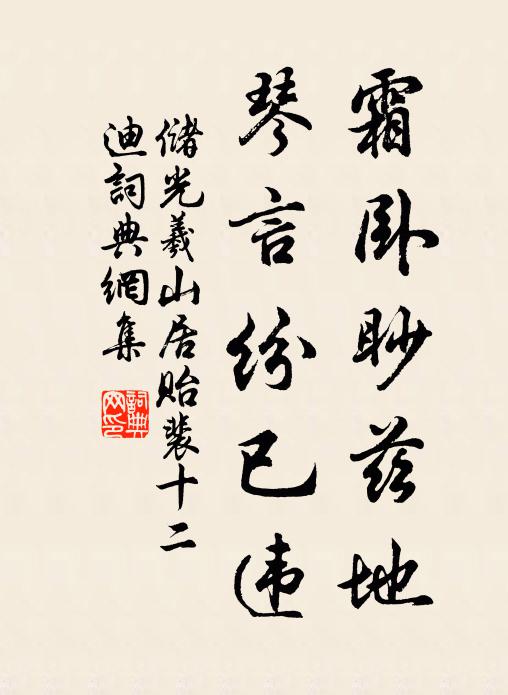 霜卧眇茲地
琴言纷已违
儲光羲山居貽裴十二
迪詞典網集
詞典网印